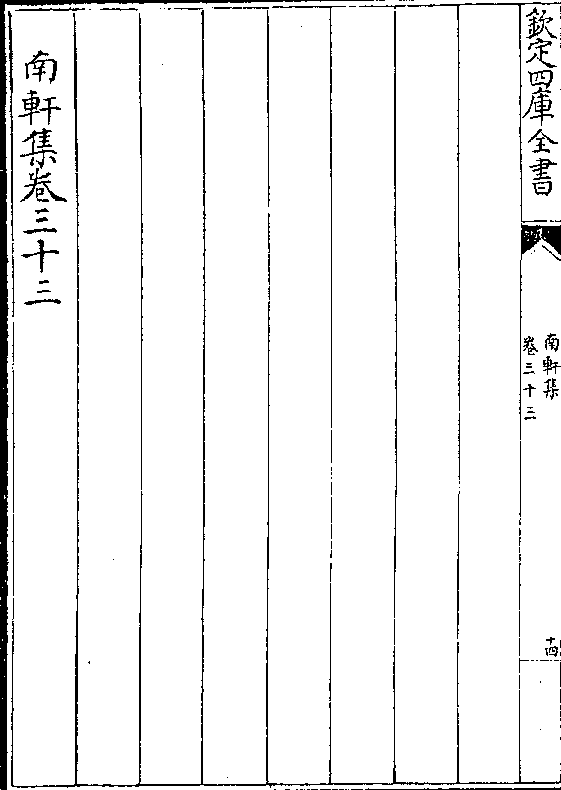 欽定四庫全書
南軒集
卷三十三
十四
南軒集卷三十三